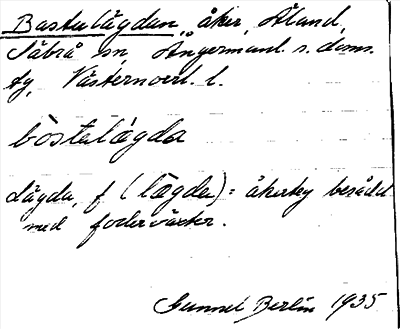 Bastulägdan, åker, Åland,
Säbrå sn, Ångermanl. s. doms.
fg, Västernorrl. l.
bòstalǻgda
Lägda, f (lægda) = åkerteg besådd
med foderväxter.
Gunnel Berlin 1935